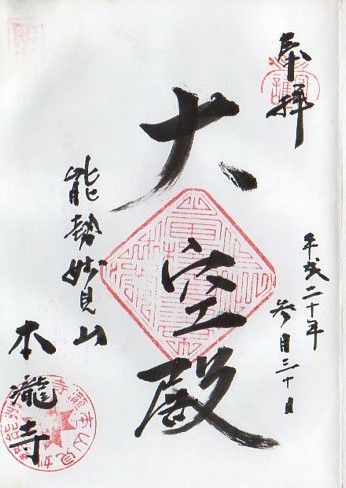 奉拝
平成二十年
参月三十日
大空殿
能勢妙見山
本瀧寺